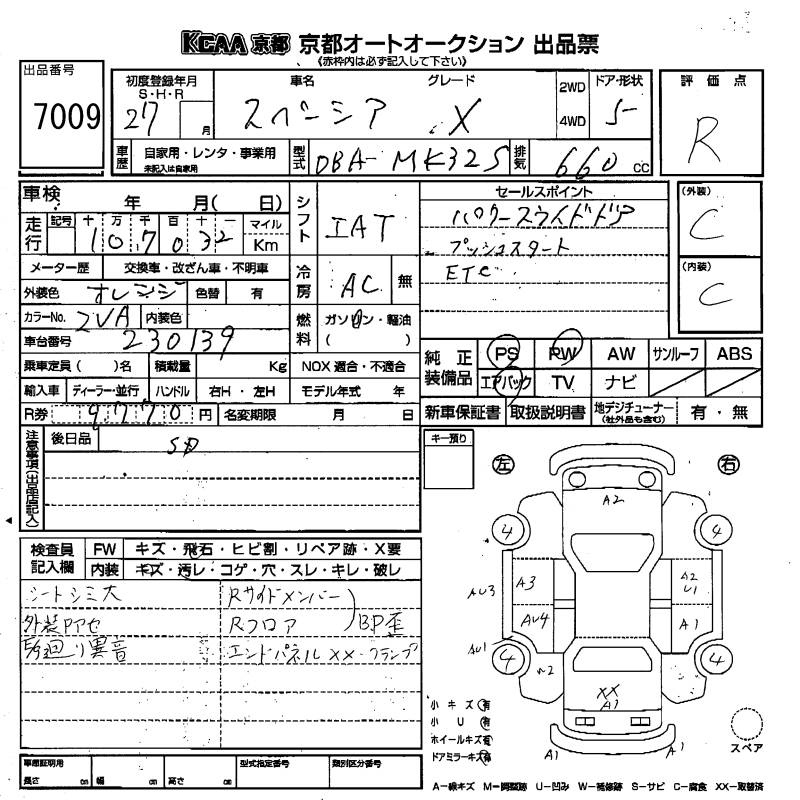 KCAA 京都 京都オートオークション 出品票
《赤枠内は必ず記入して下さい》
出品番号
7009
初度登録年月
S・H・R
27 月
車名
スペーシア
グレード
X
2WD
4WD
ドア・形状
5-
評価点
R
車歴
自家用・レンタ・事業用
未記入は自家用
型式
DBA-MK32S
排気
660 cc
車検 年 月( 日)
走行
記号 十 万 千 百 十 一 マイル
107032 Km
シフト
IAT
セールスポイント
パワースライドドア
プッシュスタート
ETC
(外装)
C
(内装)
C
メーター歴 交換車・改ざん車・不明車
外装色 オレンジ 色替 有
冷房 AC 無
カラーNo. ZVA 内装色
燃料 ガソリン・軽油
( )
車台番号 230139
乗車定員( )名 積載量 Kg NOX適合・不適合
輸入車 ディーラー・並行 ハンドル 右H・左H モデル年式 年
R券 9770 円 名変期限 月 日
純正装備品
PS PW AW サンルーフ ABS
エアバック TV ナビ
新車保証書 取扱説明書 地デジチューナー 有・無
(社外品も含む)
注意事項(出品店記入)
後日品
SD
キー預り
左
右
検査員記入欄
FW キズ・飛石・ヒビ割・リペア跡・X要
内装 キズ・汚レ・コゲ・穴・スレ・キレ・破レ
シートシミ大
外装Pアセ
E/g廻り異音
Rサイドメンバー
Rフロア
BP歪
エンドパネルXX・フランプ
A2
4
4
AU3
A3
A2
U1
AU4
A1
AU1
4
4
W2
XX
A1
A1
A1
小キズ 有
小U 有
ホイールキズ 有
ドアミラーキズ 有
スペア
車庫証明用
長さ cm 幅 cm 高さ cm
型式指定番号
類別区分番号
A-線キズ M-調整跡 U-凹み W-補修跡 S-サビ C-腐食 XX-取替済